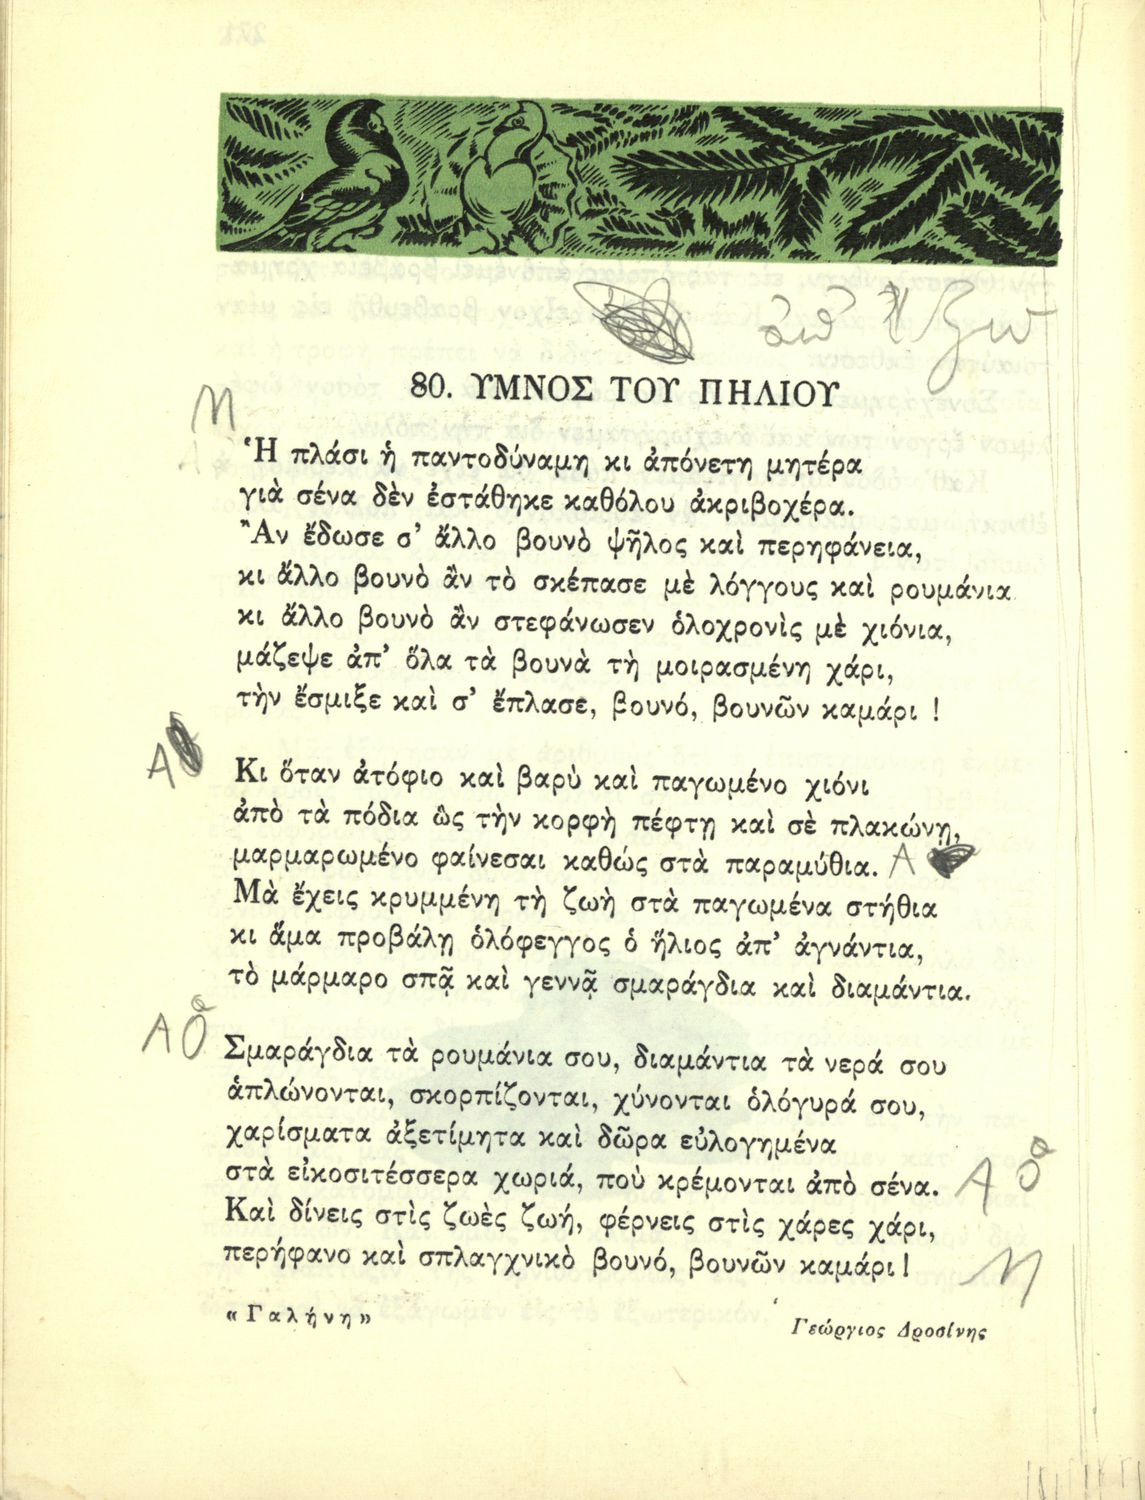 80. ΥΜΝΟΣ ΤΟΥ ΠΗΛΙΟΥ
Ἡ πλάσι ἡ παντοδύναμη κι ἀπόνετη μητέρα
γιὰ σένα δὲν ἐστάθηκε καθόλου ἀκριβοχέρα.
Ἂν ἔδωσε σ’ ἄλλο βουνὸ ψῆλος καὶ περηφάνεια,
κι ἄλλο βουνὸ ἂν τὸ σκέπασε μὲ λόγγους καὶ ρουμάνια
κι ἄλλο βουνὸ ἂν στεφάνωσεν ὁλοχρονὶς μὲ χιόνια,
μάζεψε ἀπ’ ὅλα τὰ βουνὰ τὴ μοιρασμένη χάρι,
τὴν ἔσμιξε καὶ σ’ ἔπλασε, βουνό, βουνῶν καμάρι !
Κι ὅταν ἀτόφιο καὶ βαρὺ καὶ παγωμένο χιόνι
ἀπὸ τὰ πόδια ὣς τὴν κορφὴ πέφτῃ καὶ σὲ πλακώνῃ,
μαρμαρωμένο φαίνεσαι καθώς στὰ παραμύθια. Α
Μὰ ἔχεις κρυμμένη τὴ ζωὴ στὰ παγωμένα στήθια
κι ἅμα προβάλῃ ὁλόφεγγος ὁ ἥλιος ἀπ’ ἀγνάντια,
τὸ μάρμαρο σπᾷ καὶ γεννᾷ σμαράγδια καὶ διαμάντια.
Σμαράγδια τὰ ρουμάνια σου, διαμάντια τὰ νερά σου
ἁπλώνονται, σκορπίζονται, χύνονται ὁλόγυρά σου,
χαρίσματα ἀξετίμητα καὶ δῶρα εὐλογημένα
στὰ εἰκοσιτέσσερα χωριά, ποὺ κρέμονται ἀπὸ σένα.
Καὶ δίνεις στὶς ζωὲς ζωή, φέρνεις στὶς χάρες χάρι,
περήφανο καὶ σπλαγχνικὸ βουνό, βουνῶν καμάρι !
«Γαλήνη»
Γεώργιος Δροσίνης